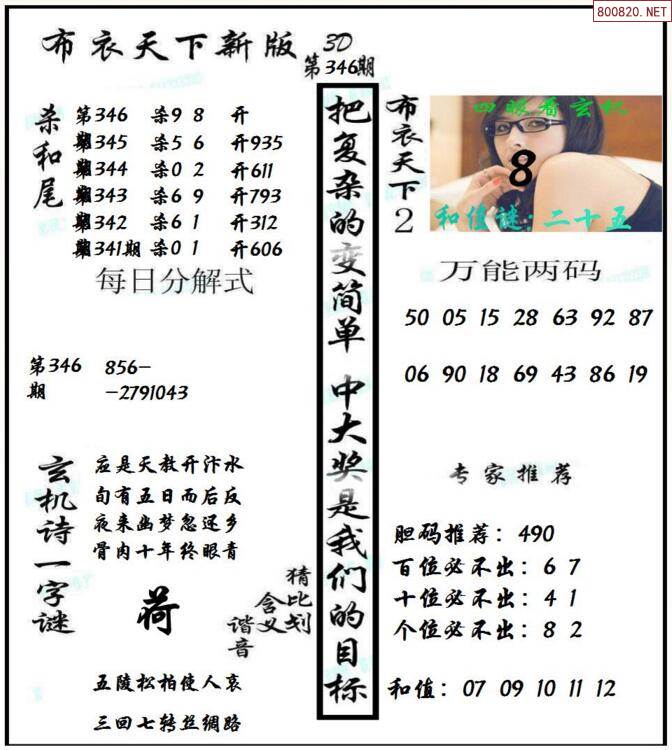 800820.NET
布衣天下新版 3D
第346期
杀和尾
第346 杀9 8 开
期345 杀5 6 开935
期344 杀0 2 开611
期343 杀6 9 开793
期342 杀6 1 开312
第341期 杀0 1 开606
每日分解式
第346期
856-
-2791043
玄机诗一字谜
应是天教开汴水
旬有五日而后反
夜来幽梦忽还乡
骨肉十年终眼青
荷
猜比划
含义
谐音
五陵松柏使人哀
三回七转丝绸路
把复杂的变简单 中大奖是我们的目标
布衣天下2
四眼看玄机
8
和值谜:二十五
万能两码
50 05 15 28 63 92 87
06 90 18 69 43 86 19
专家推荐
胆码推荐:490
百位必不出:6 7
十位必不出:4 1
个位必不出:8 2
和值:07 09 10 11 12